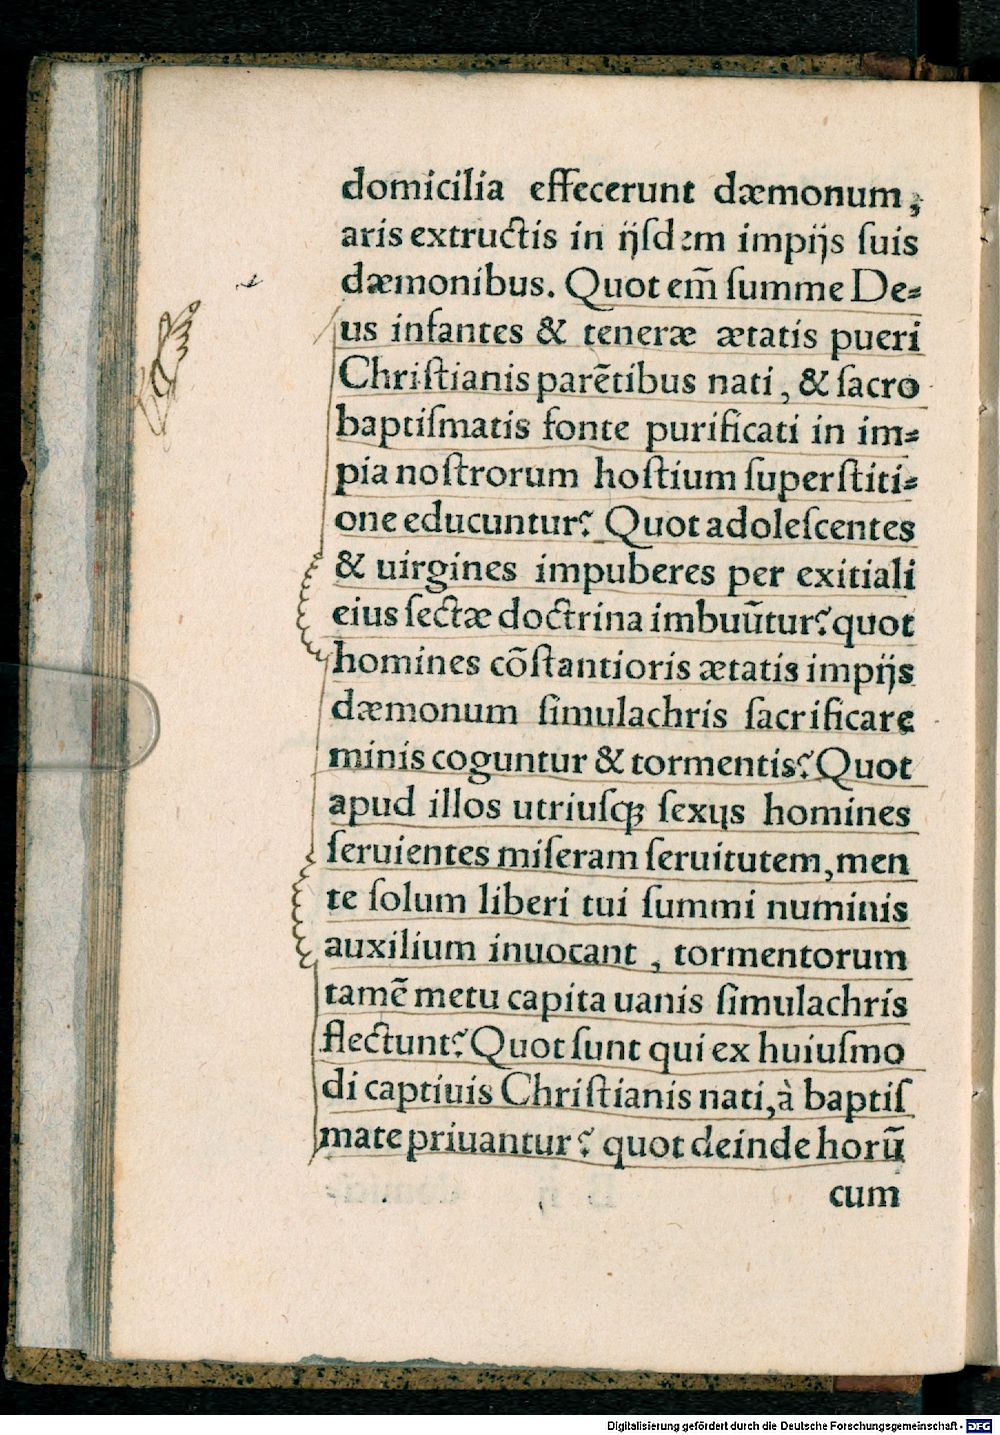 domicilia effecerunt dæmonum,
aris extructis in ijſdem impijs ſuis
dæmonibus. Quot em̃ ſumme De⸗
us infantes & teneræ ætatis pueri
Chriſtianis parẽtibus nati, & ſacro
baptiſmatis fonte purificati in im⸗
pia noſtrorum hoſtium ſuperſtiti⸗
one educuntur? Quot adoleſcentes
& uirgines impuberes per exitiali
eius ſectæ doctrina imbuũtur? quot
homines cõſtantioris ætatis impijs
dæmonum ſimulachris ſacrificare
minis coguntur & tormentis? Quot
apud illos utriuſqꝫ ſexus homines
ſeruientes miſeram ſeruitutem, men
te ſolum liberi tui ſummi numinis
auxilium inuocant, tormentorum
tamẽ metu capita uanis ſimulachris
flectunt? Quot ſunt qui ex huiuſmo
di captiuis Chriſtianis nati, à baptiſ
mate priuantur? quot deinde horũ
cum
Digitalisierung gefördert durch die Deutsche Forschungsgemeinschaft - DFG